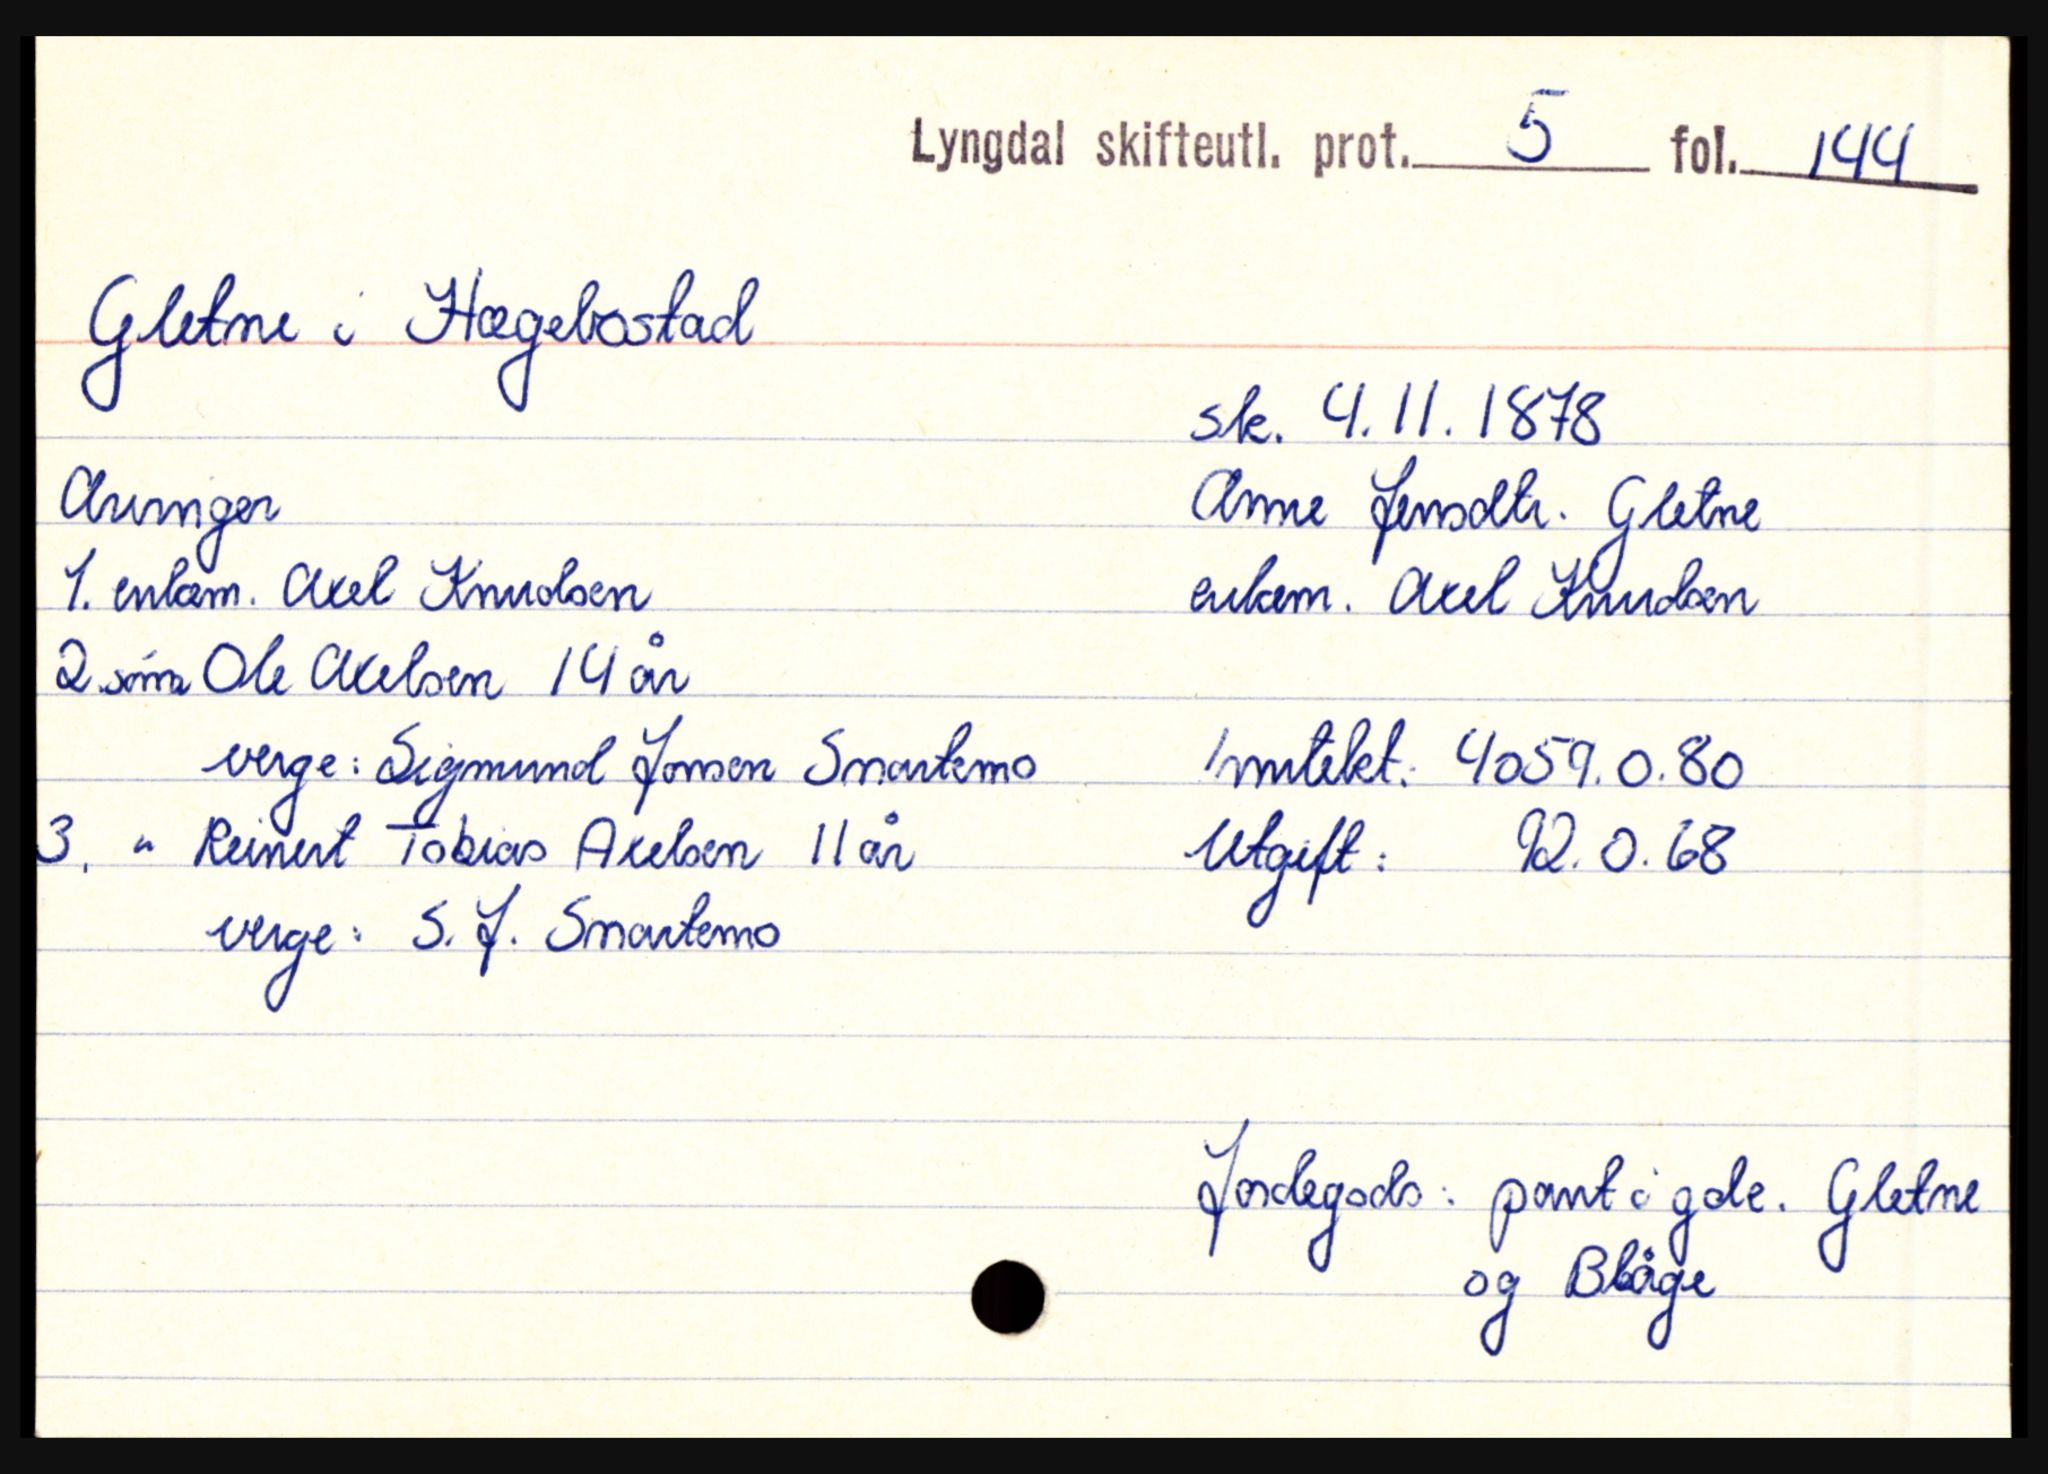 Lyngdal skifteutl. prot. 5 fol. 144
Gletne i Hægebostad
sk. 4.11.1878
Arvinger
Anne Jensdtr. Gletne
1. enkem. Axel Knudsen
enkem. Axel Knudsen
2. sønn Ole Axelsen 14 år
verge: Sigmund Jonsen Snartemo
Inntekt: 4059.0.80
3. " Reinert Tobias Axelsen 11 år
Utgift: 92.0.68
verge: S. J. Snartemo
Jordegods: pant i gde. Gletne
og Blåge